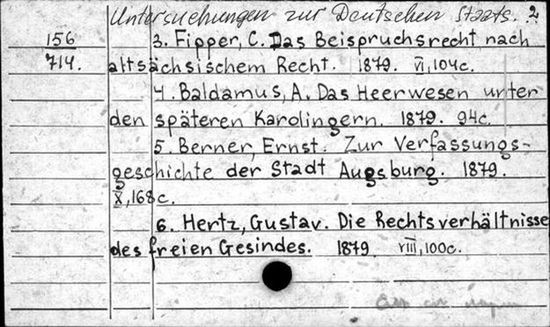 Untersuchungen zur Deutschen Staats. 2
156
714.
3. Fipper, C. Das Beispruchsrecht nach
altsächsischem Recht. 1879. VI, 104c.
4. Baldamus, A. Das Heerwesen unter
den späteren Karolingern. 1879. 94c.
5. Berner, Ernst. Zur Verfassungs-
geschichte der Stadt Augsburg. 1879.
X, 168c.
6. Hertz, Gustav. Die Rechtsverhältnisse
des freien Gesindes. 1879 VIII, 100c.